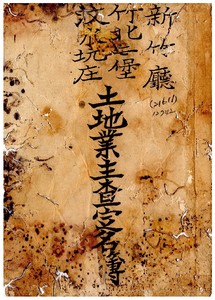 新竹廳
竹北二堡
汶水坑庄
土地業主查定名簿